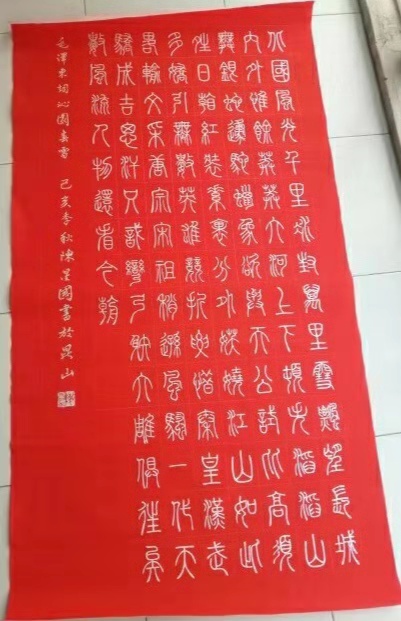 北國風光千里冰封萬里雪飄望長城
內外惟餘莽莽大河上下頓失滔滔山
舞銀蛇原馳蠟象欲與天公試比高須
晴日看紅裝素裹分外妖嬈江山如此
多嬌引無數英雄競折腰惜秦皇漢武
略輸文采唐宗宋祖稍遜風騷一代天
驕成吉思汗只識彎弓射大雕俱往矣
數風流人物還看今朝
毛澤東詞沁園春雪 己亥季秋陳星國書於吳山